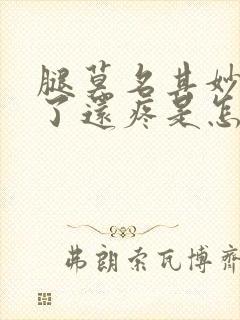 腿莫名其妙
了還疼是怎
弗朗索瓦博齊